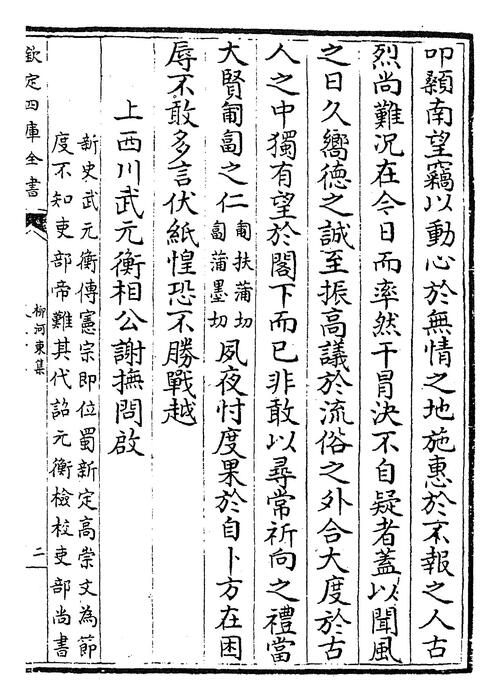 叩顙南望竊以動心於無情之地施惠於不報之人古
烈尚難况在今日而率然干冒決不自疑者蓋以聞風
之日久嚮德之誠至振高議於流俗之外合大度於古
人之中獨有望於閣下而已非敢以尋常祈向之禮當
大賢匍匐之仁匍扶蒲切匐蒲墨切夙夜忖度果於自卜方在困
辱不敢多言伏紙惶恐不勝戰越
上西川武元衡相公謝撫問啟
新史武元衡傳憲宗即位蜀新定高崇文為節
度不知吏部帝難其代詔元衡檢校吏部尚書
欽定四庫全書
柳河東集
二